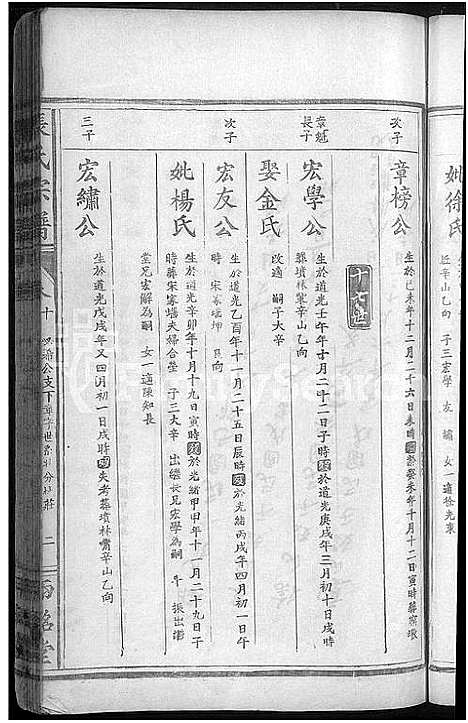 妣徐氏
丘辛山乙向　子三宏學　友　繡　女一適徐光東
次子
章榜公
生於己未年十二月二十六日未時歿於癸未年十月十二日寅時葬
十七世
章魁長子
宏學公
生於道光壬午年十月二十二日子時歿於道光庚戌年三月初十日戌時
葬墳林寡辛山乙向
娶金氏
改適　嗣子大辛
次子
宏友公
生於道光乙酉年十一月二十五日辰時歿於光緒丙戌年四月初一日午
時　宋寡墦坤　艮向
妣楊氏
生於道光辛卯年十月十九日寅時歿於光緒甲申年十一月二十九日子
時葬宋寡墦夫婦合塋　子三大辛　出繼長兄宏學為嗣　斗　振出濟
堂兄宏解為嗣　女一適陳知長
三子
宏繡公
生於道光戊戌年又四月初一日戌時歿失考葬墳林嘴辛山乙向
張氏宗譜
卷十
繡公支下
分
莊
二
兩銘堂